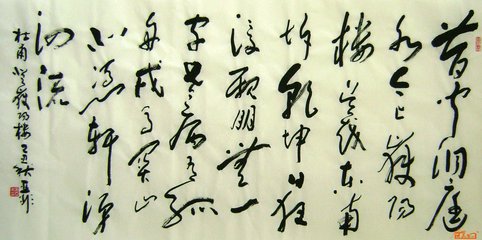 昔聞洞庭
水今上嶽陽
樓吳楚東南
坼乾坤日夜
浮親朋無一
字老病有孤
舟戎馬關山
北憑軒涕
泗流
杜甫登嶽陽樓己丑秋